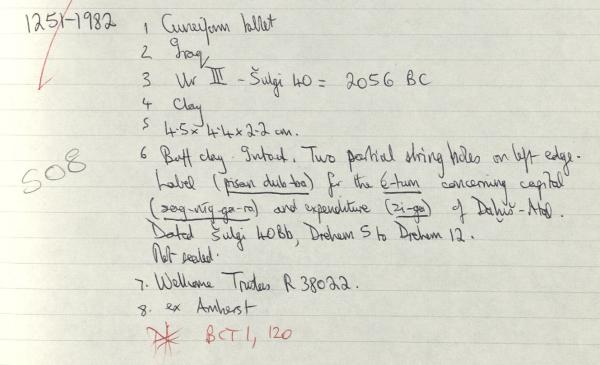 1251-1982
1 Cuneiform tablet
2 Iraq
3 Ur III - Šulgi 40 = 2056 BC
4 Clay
5 4.5 x 4.4 x 2.2 cm.
6 Buff clay. Intact. Two partial string holes on left edge.
Label (pisan dub-ba) for the é-tum concerning capital
(sag-níg-ga-ra) and expenditure (zi-ga) of Dahiš-Atal.
Dated Šulgi 40Bb, Drehem 5 to Drehem 12.
Not sealed.
7. Wellcome Trustees R 38022.
8. ex Amherst
BCT 1, 120
508